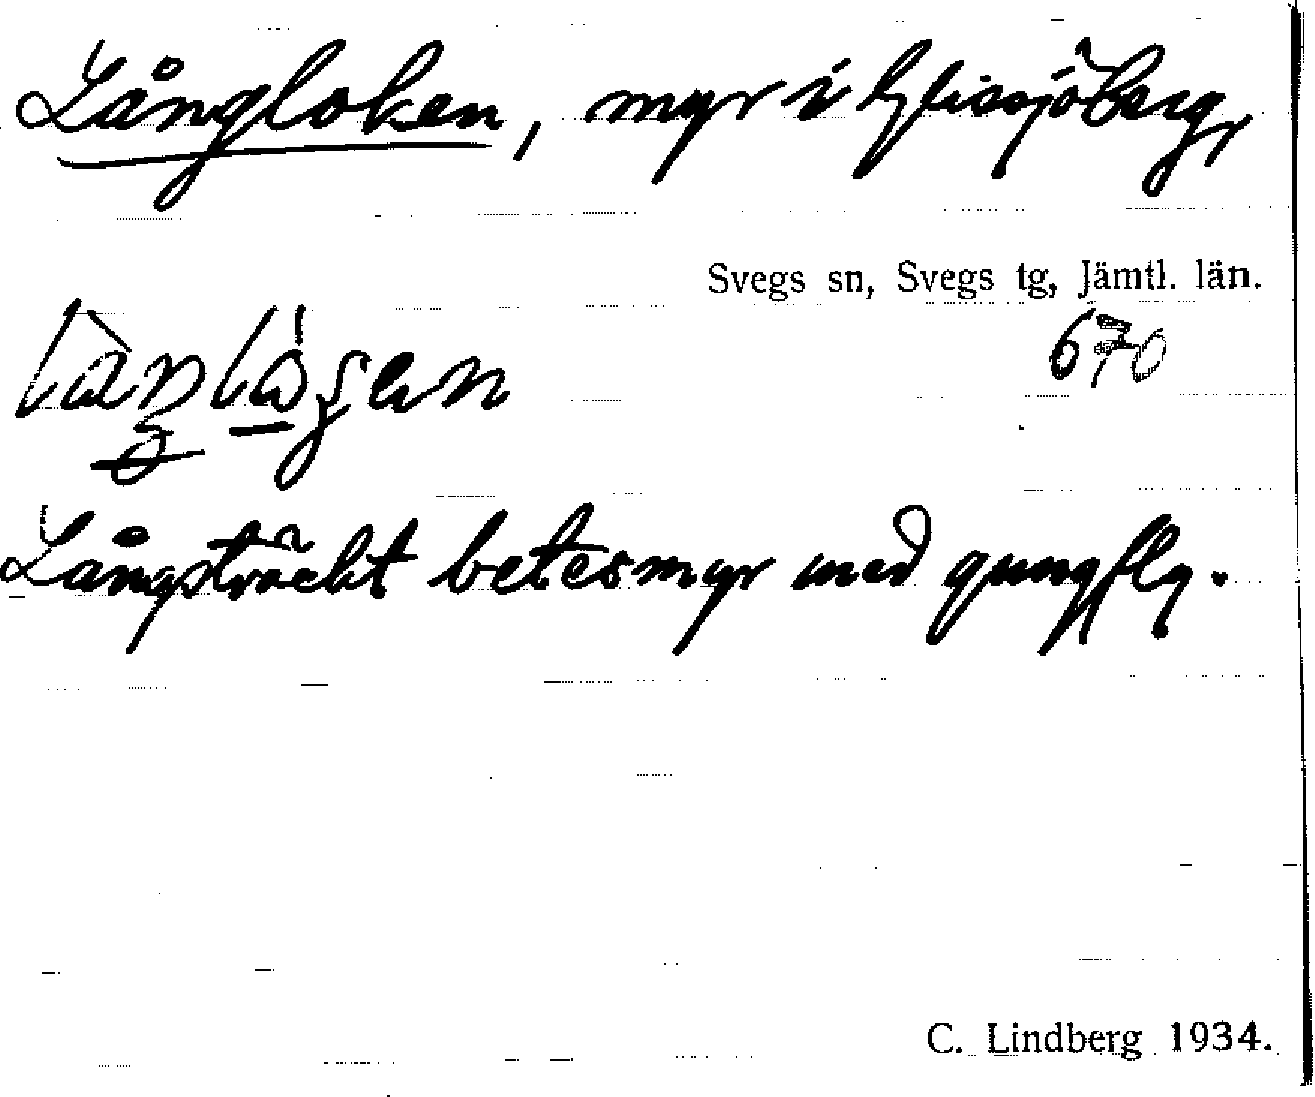 Långloken, myr i Glissjöberg,
Svegs sn, Svegs tg, Jämtl. län.
670
Långsträckt betesmyr med gungfly.
C. Lindberg 1934.